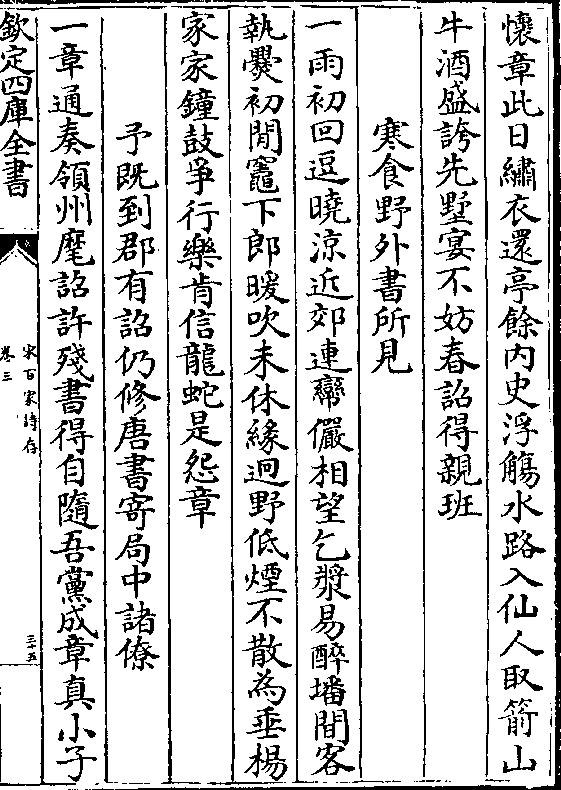 懷章此日繡衣還亭餘内史浮觴水路入仙人取箭山
牛酒盛誇先墅宴不妨春詔得親班
寒食野外書所見
一雨初回逗曉涼近郊連𢃄儼相望乞漿易醉墦間客
執爨初閒竈下郎暖吹未休緣迥野低煙不散為垂楊
家家鐘鼓爭行樂肯信龍蛇是怨章
予既到郡有詔仍修唐書寄局中諸僚
一章通奏領州麾詔許殘書得自隨吾黨成章真小子
欽定四庫全書
宋百家詩存
卷三
三十五